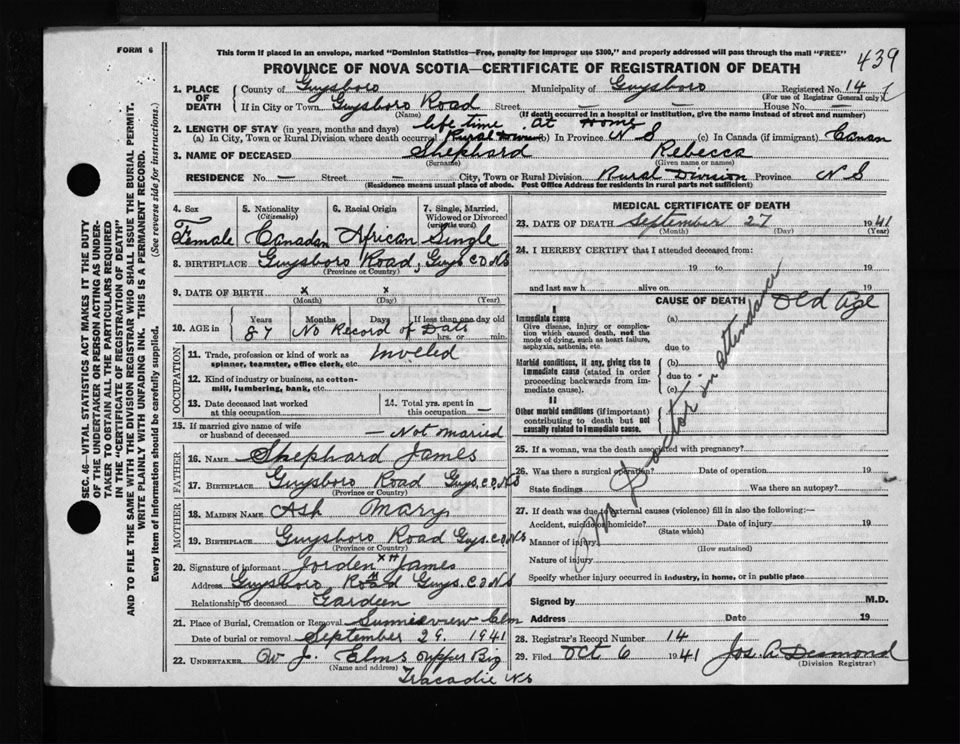 FORM 6
This form if placed in an envelope, marked "Dominion Statistics—Free, penalty for improper use $300," and properly addressed will pass through the mail "FREE"
439
PROVINCE OF NOVA SCOTIA—CERTIFICATE OF REGISTRATION OF DEATH
SEC. 46—VITAL STATISTICS ACT MAKES IT THE DUTY
OF THE UNDERTAKER OR PERSON ACTING AS UNDER-
TAKER TO OBTAIN ALL THE PARTICULARS REQUIRED
IN THE "CERTIFICATE OF REGISTRATION OF DEATH"
AND TO FILE THE SAME WITH THE DIVISION REGISTRAR WHO SHALL ISSUE THE BURIAL PERMIT.
WRITE PLAINLY WITH UNFADING INK. THIS IS A PERMANENT RECORD.
Every item of information should be carefully supplied. (See reverse side for instructions.)
1. PLACE OF DEATH County of Guysboro Municipality of Guysboro Registered No. 14
(For use of Registrar General only)
If in City or Town Guysboro Road Street — House No. —
(Name) (If death occurred in a hospital or institution, give the name instead of street and number)
2. LENGTH OF STAY (in years, months and days) life time at Home
(a) In City, Town or Rural Division where death occurred Rural (b) In Province N S (c) In Canada (if immigrant) Canan
3. NAME OF DECEASED Shephard Rebecca
(Surname) (Given name or names)
RESIDENCE No. — Street — City, Town or Rural Division Rural Division Province N S
(Residence means usual place of abode. Post Office Address for residents in rural parts not sufficient)
4. Sex 5. Nationality (Citizenship) 6. Racial Origin 7. Single, Married, Widowed or Divorced (write the word)
Female Canadan African Single
8. BIRTHPLACE Guysboro Road, Guys C O NS
(Province or Country)
9. DATE OF BIRTH x x
(Month) (Day) (Year)
10. AGE in Years Months Days If less than one day old
87 No Record of Dats hrs. or min.
OCCUPATION
11. Trade, profession or kind of work as spinner, teamster, office clerk, etc. Inveled
12. Kind of industry or business, as cotton-mill, lumbering, bank, etc.
13. Date deceased last worked at this occupation 14. Total yrs. spent in this occupation —
15. If married give name of wife or husband of deceased — Not married
FATHER
16. NAME Shephard James
17. BIRTHPLACE Guysboro Road Guys. C O. NS
(Province or Country)
MOTHER
18. MAIDEN NAME Ash Mary
19. BIRTHPLACE Guysboro Road Guys. C O NS
(Province or Country)
20. Signature of informant Jorden James
Address Guysboro Road Guys. C O NS
Relationship to deceased Gardeen
21. Place of Burial, Cremation or Removal Sunnieview
Date of burial or removal September 29. 1941
22. UNDERTAKER W J. Elms upper Big
(Name and address)
Tracadie NS
MEDICAL CERTIFICATE OF DEATH
23. DATE OF DEATH September 27 1941
(Month) (Day) (Year)
24. I HEREBY CERTIFY that I attended deceased from:
19 to 19
and last saw h alive on 19
CAUSE OF DEATH Old Age
I
Immediate cause (a)
Give disease, injury or complication which caused death, not the mode of dying, such as heart failure, asphyxia, asthenia, etc. due to
Morbid conditions, if any, giving rise to immediate cause (stated in order proceeding backwards from immediate cause). (b)
due to
(c)
II
Other morbid conditions (if important) contributing to death but not causally related to immediate cause.
no Doctor in attendance
25. If a woman, was the death associated with pregnancy?
26. Was there a surgical operation? Date of operation 19
State findings Was there an autopsy?
27. If death was due to external causes (violence) fill in also the following:—
Accident, suicide or homicide? Date of injury 19
(State which)
Manner of injury
(How sustained)
Nature of injury
Specify whether injury occurred in industry, in home, or in public place
Signed by M.D.
Address Date 19
28. Registrar's Record Number 14
29. Filed Oct 6 1941 Jos. A Desmond
(Division Registrar)